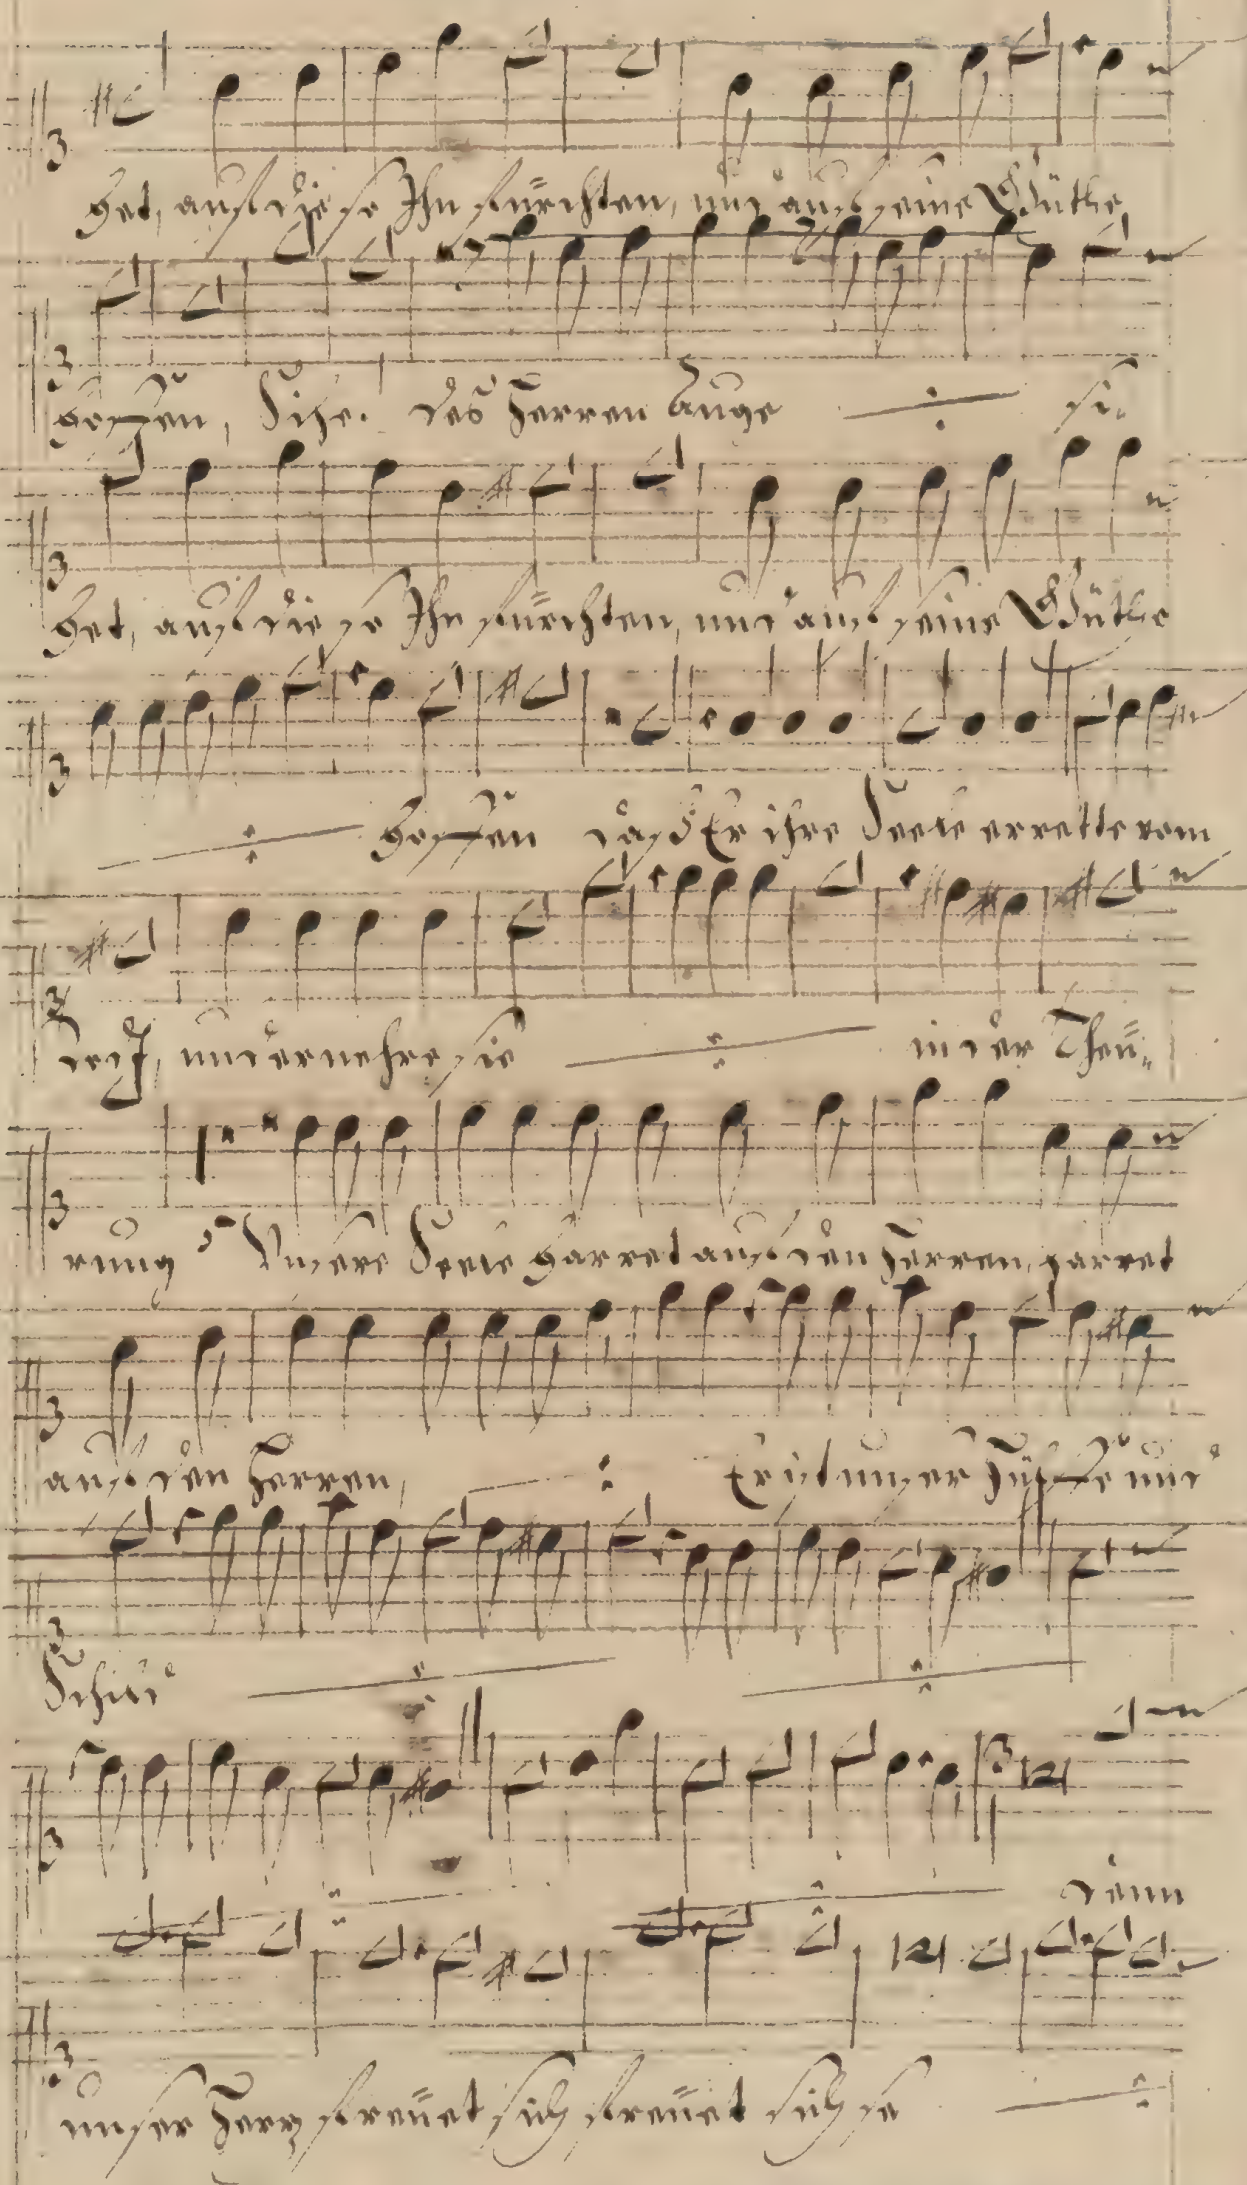 het, auf die so Ihn fürchten, und auf seine Güthe
hoffen, Sihe. des Herren Auge si-
het, auf die so Ihn fürchten, und auf seine Güthe
hoffen daß Er ihre Seele errette vom
Todt, und ernehre sie in der Theü-
rung Unsere Seele harret auf den Herren, harret
auf den Herren, Er ist unser Hülffe und
Schild
denn
unser Herz freüet sich freüet sich se